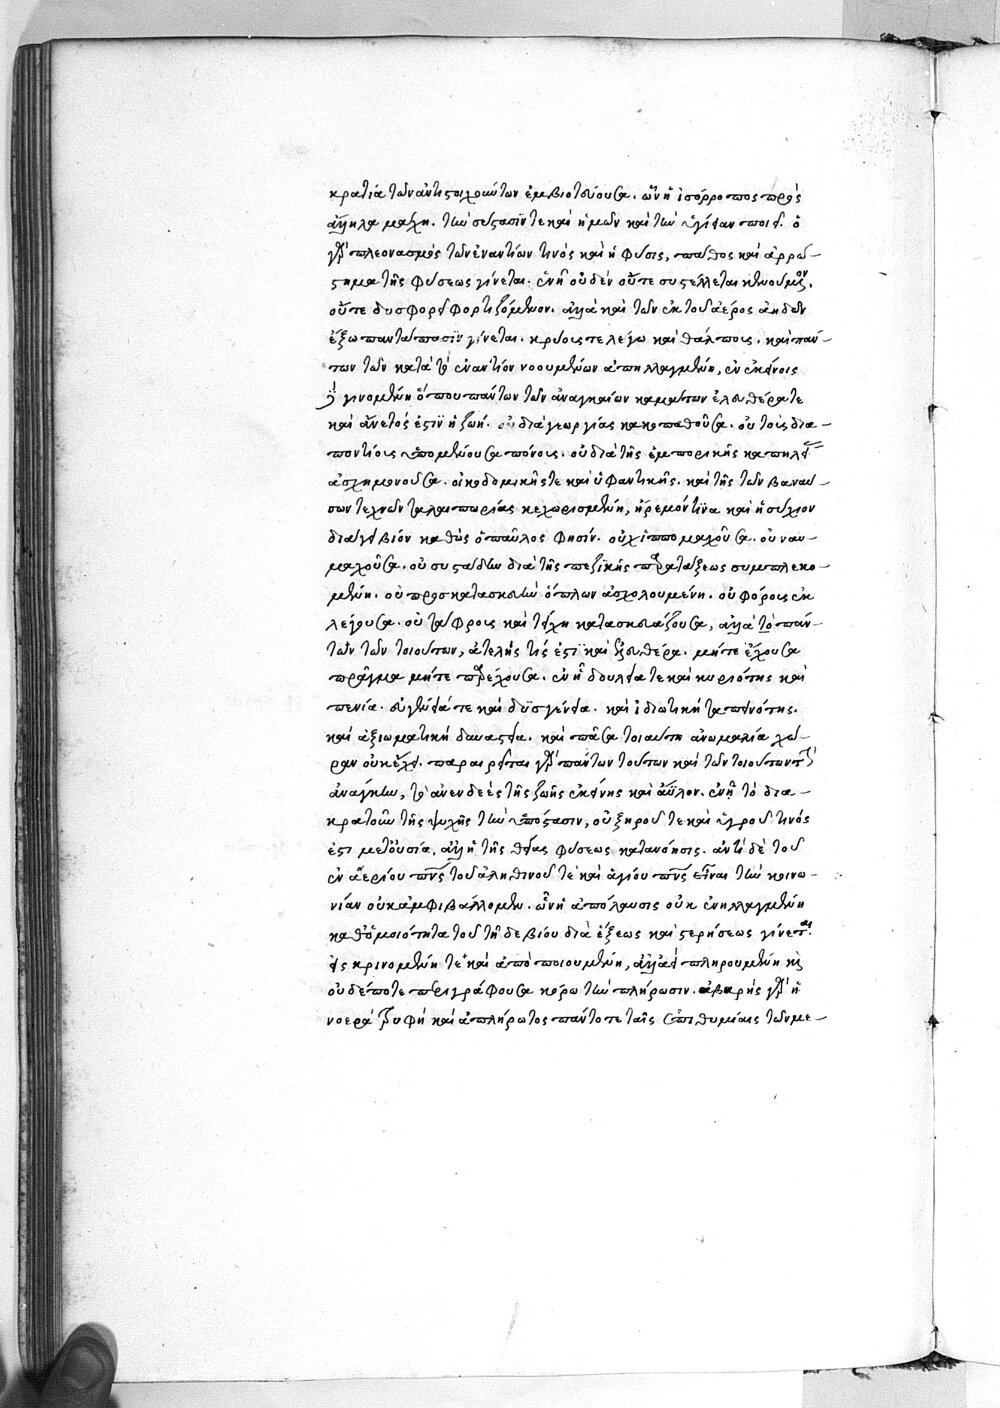 κρατία τῶν ἀντιστοιχούντων ἐμβιοτεύουσα. ὧν ἡ ἰσόρροπος πρὸς
ἄλληλα μάχη. τὴν σύστασίν τε καὶ ἡμῶν καὶ τὴν ὑγίειαν ποιεῖ. ὁ
γὰρ πλεονασμὸς τῶν ἐναντίων τινὸς καὶ ἡ φύσις, πάθος καὶ ἀρρώ-
στημα τῆς φύσεως γίνεται. ἐν ἧ οὐδὲν οὔτε συστέλλεται κενούμενον,
οὔτε δυσφορεῖ φορτιζόμενον. ἀλλὰ καὶ τῶν ἐκ τοῦ ἀέρος ἀηδῶν
ἔξω παντάπασιν γίνεται. κρύοις τε λέγω καὶ θάλποις. καὶ πάν-
των τῶν κατὰ τὸ ἐναντίον νοουμένων ἀπηλλαγμένη, ἐν ἐκείνοις
γινομένη ὅπου πάντων τῶν ἀναγκαίων καμάτων ἐλευθέρα τε
καὶ ἄνετός ἐστιν ἡ ζωή. οὐ διὰ γεωργίας κακοπαθοῦσα. οὐ τοὺς δια-
ποντίοις ὑπομένουσα πόνοις. οὐ διὰ τῆς ἐμπορικῆς καπηλεί-
ἀσχημονοῦσα. οἰκοδομικῆς τε καὶ ὑφαντικῆς. καὶ τῆς τῶν βαναύ-
σων τεχνῶν ταλαιπωρίας κεχωρισμένη, ἠρέμόν τινα καὶ ἡσύχιον
διάγει βίον καθὼς ὁ παῦλος φησίν. οὐχ ἱππομαχοῦσα. οὐ ναυ-
μαχοῦσα. οὐ συστάδην διὰ τῆς πεζικῆς παρατάξεως συμπλεκο-
μένη. οὐ πρὸς κατασκευὴν ὅπλων ἀσχολουμένη. οὐ φόρους ἐκ
λέγουσα. οὐ τάφροις καὶ τείχη κατασκευάζουσα, ἀλλὰ τὸ πάν-
των τῶν τοιούτων, ἀτελής τίς ἐστι καὶ ἐλευθέρα. μήτε ἔχουσα
πρᾶγμα μήτε παρέχουσα. ἐν ἧ δουλεία τε καὶ κυριότης καὶ
πενία. εὐγένειά τε καὶ δυσγένεια. καὶ ἰδιωτικὴ ταπεινότης.
καὶ ἀξιωματικὴ δυναστεία. καὶ πᾶσα τοιαύτη ἀνωμαλία χώ-
ραν οὐκ ἔχει. παραιρεῖται γὰρ πάντων τούτων καὶ τῶν τοιούτων τὴν
ἀνάγκην, τὸ ἀνενδεὲς τῆς ζωῆς ἐκείνης καὶ ἄϋλον. ἐν ἧ τὸ δια-
κρατοῦν τῆς ψυχῆς τὴν ὑπόστασιν, οὐ ξηροῦ τε καὶ ὑγροῦ τινός
ἐστι μετουσία, ἀλλ' ἡ τῆς θείας φύσεως κατανόησις. ἀντὶ δὲ τοῦ
ἐναερίου πνς τοῦ ἀληθινοῦ τε καὶ ἁγίου πνς εἶναι τὴν κοινω-
νίαν οὐκ ἀμφιβάλλομεν. ὧν ἡ ἀπόλαυσις οὐκ ἐνηλλαγμένη
καθ' ὁμοιότητα τοῦ τῆδε βίου διὰ ἕξεως καὶ στερήσεως γίνεται.
εἰσκρινομένη τε καὶ ἀποποιουμένη, ἀλλ' ἀεὶ πληρουμένη καὶ
οὐδέποτε περιγράφουσα κόρω τὴν πλήρωσιν. ἀβαρὴς γὰρ ἡ
νοερὰ τρυφὴ καὶ ἀπλήρωτος πάντοτε ταῖς ἐπιθυμίαις τῶν με-